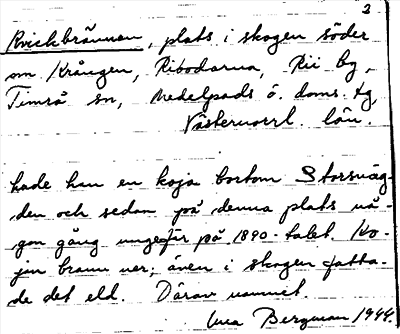 3
Kvickbrännan, plats i skogen söder
om Krången, Ribodarna, Rii by,
Timrå sn, Medelpads ö. doms. tg,
Västernorrl. län.
hade han en koja bortom Storsväg-
den och sedan på denna plats nå-
gon gång ungefär på 1890-talet. Ko-
jan brann ner; även i skogen fatta-
de det eld. Därav namnet.
Bergman 1944.